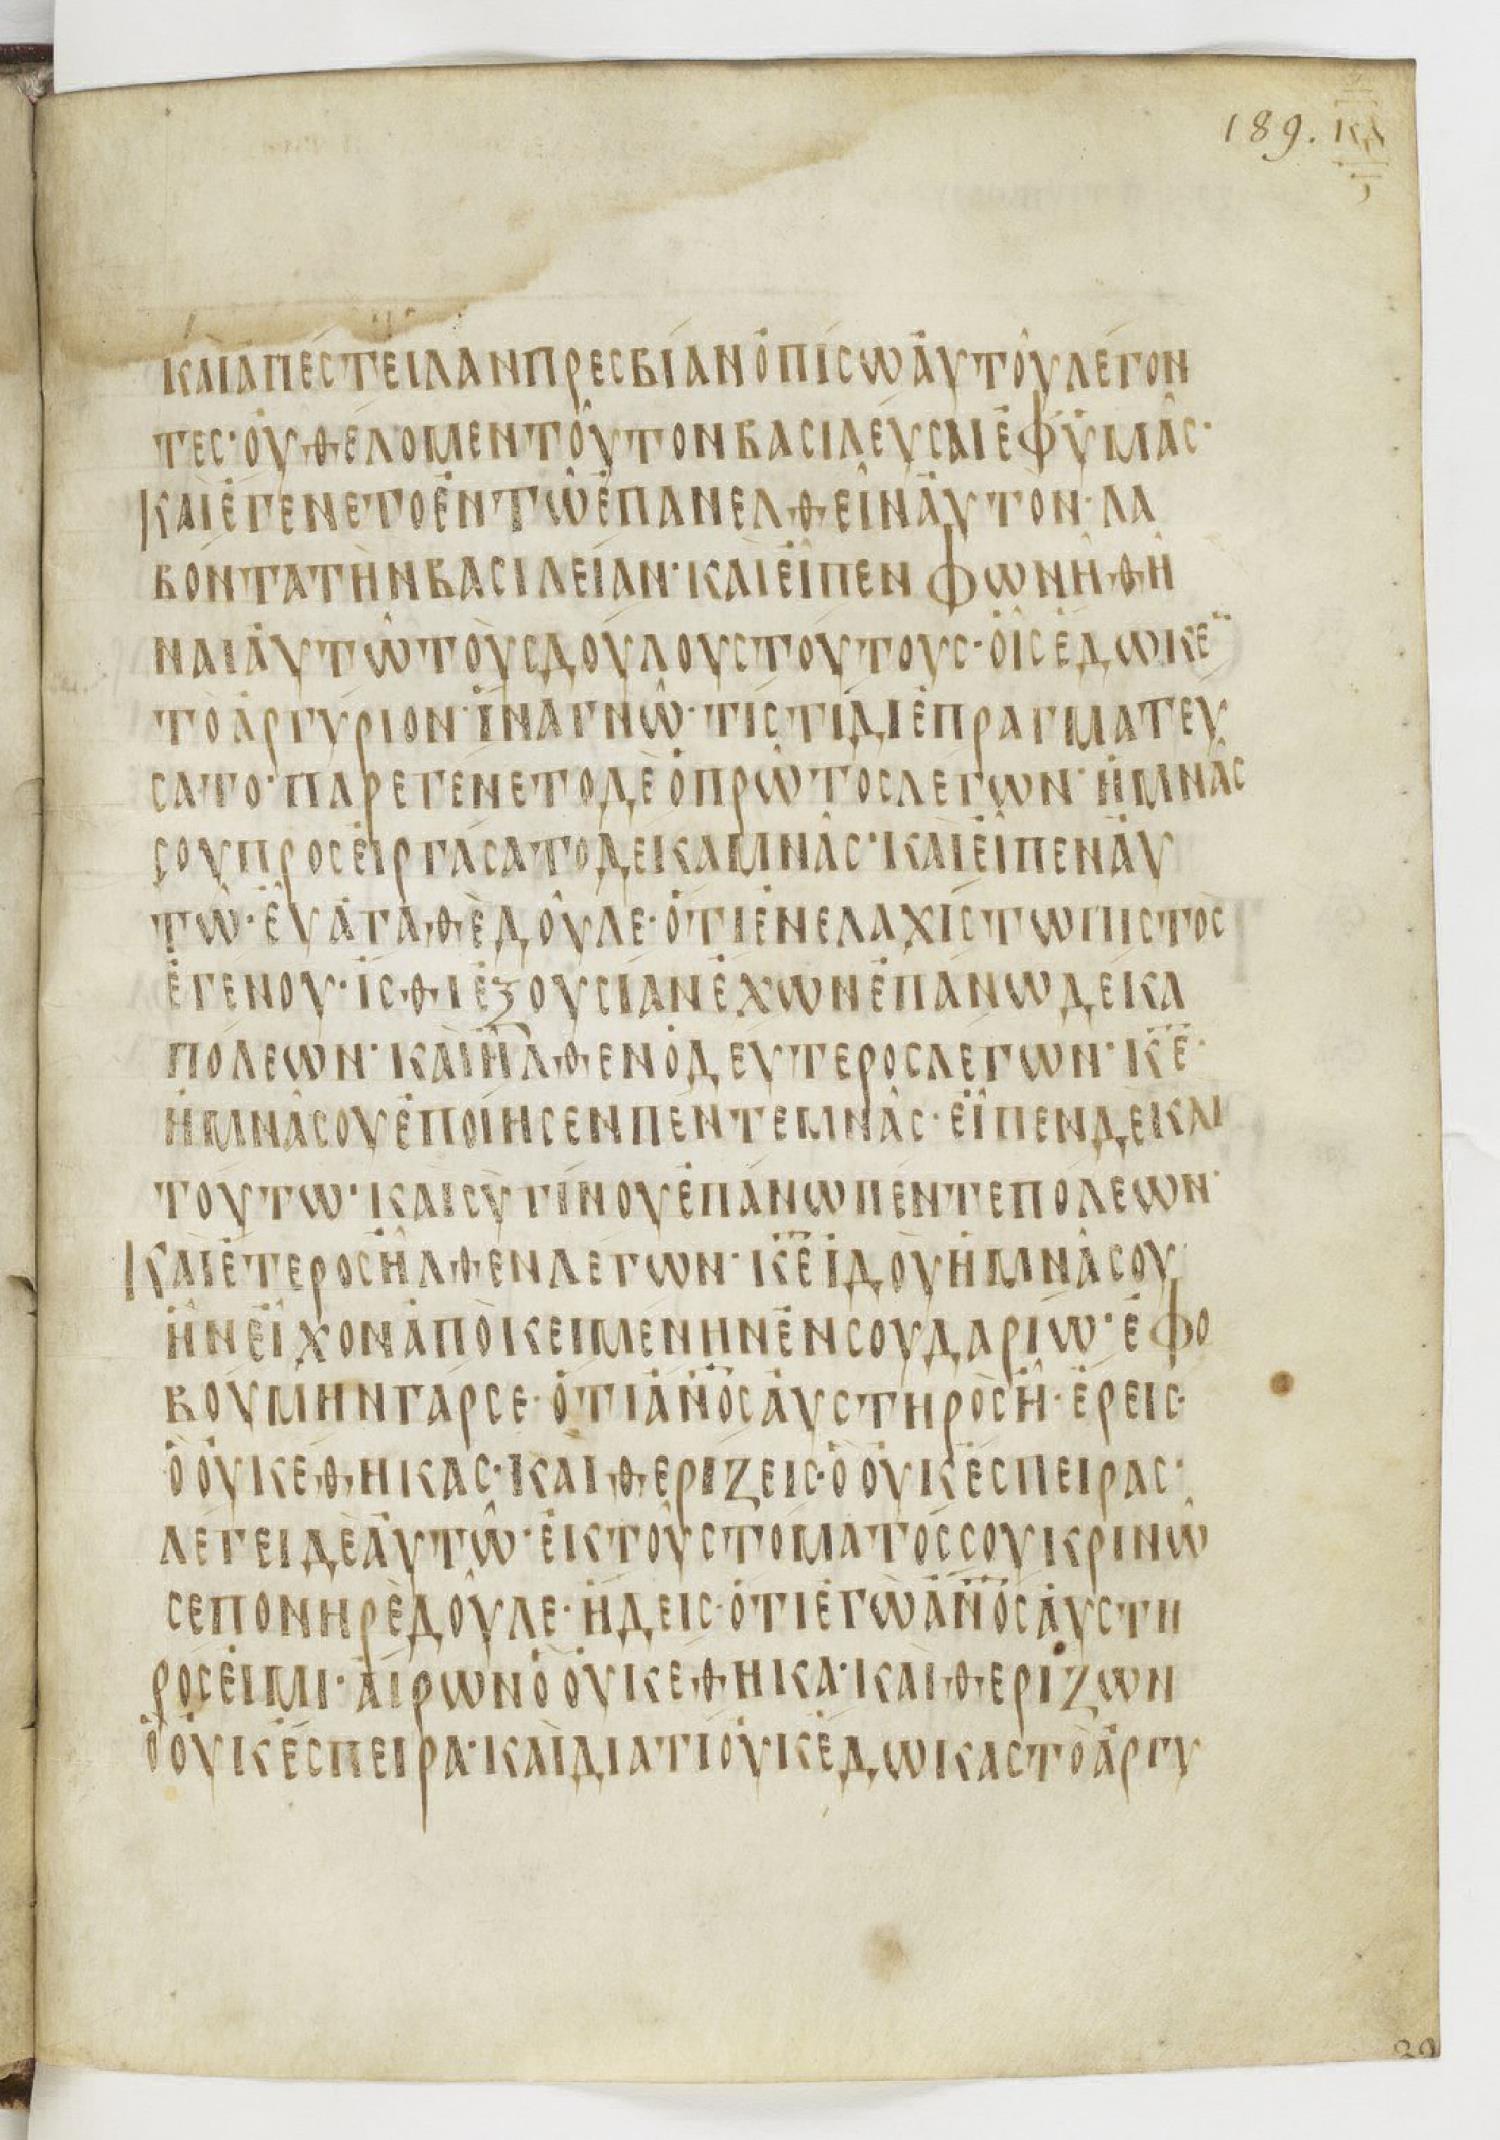 189. ΚΔ
ΚΑΙΑΠΕСΤΕΙΛΑΝΠΡΕСΒΙΑΝΟΠΙСѠΑΥΤΟΥΛΕΓΟΝ
ΤΕС·ΟΥΘΕΛΟΜΕΝΤΟΥΤΟΝΒΑСΙΛΕΥСΑΙΕΦΥΜΑС·
ΚΑΙΕΓΕΝΕΤΟΕΝΤѠΕΠΑΝΕΛΘΕΙΝΑΥΤΟΝ·ΛΑ
ΒΟΝΤΑΤΗΝΒΑСΙΛΕΙΑΝ·ΚΑΙΕΙΠΕΝΦѠΝΗΘΗ
ΝΑΙΑΥΤѠΤΟΥСΔΟΥΛΟΥСΤΟΥΤΟΥС·ΟΙСΕΔѠΚΕ̅
ΤΟΑΡΓΥΡΙΟΝ·ΙΝΑΓΝѠ·ΤΙСΤΙΔΙΕΠΡΑΓΜΑΤΕΥ
СΑΤΟ·ΠΑΡΕΓΕΝΕΤΟΔΕΟΠΡѠΤΟСΛΕΓѠΝ·ΗΜΝΑС
СΟΥΠΡΟСΕΙΡΓΑСΑΤΟΔΕΚΑΜΝΑС·ΚΑΙΕΙΠΕΝΑΥ
ΤѠ·ΕΥΑΓΑΘΕΔΟΥΛΕ·ΟΤΙΕΝΕΛΑΧΙСΤѠΠΙСΤΟС
ΕΓΕΝΟΥ·ΙСΘΙΕΞΟΥСΙΑΝΕΧѠΝΕΠΑΝѠΔΕΚΑ
ΠΟΛΕѠΝ·ΚΑΙΗΛΘΕΝΟΔΕΥΤΕΡΟСΛΕΓѠΝ·Κ̅Ε̅·
ΗΜΝΑСΟΥΕΠΟΙΗСΕΝΠΕΝΤΕΜΝΑС·ΕΙΠΕΝΔΕΚΑΙ
ΤΟΥΤѠ·ΚΑΙСΥΓΙΝΟΥΕΠΑΝѠΠΕΝΤΕΠΟΛΕѠΝ·
ΚΑΙΕΤΕΡΟСΗΛΘΕΝΛΕΓѠΝ·Κ̅Ε̅ΙΔΟΥΗΜΝΑСΟΥ
ΗΝΕΙΧΟΝΑΠΟΚΕΙΜΕΝΗΝΕΝСΟΥΔΑΡΙѠ·ΕΦΟ
ΒΟΥΜΗΝΓΑΡСΕ·ΟΤΙΑ̅Ν̅Ο̅С̅ΑΥСΤΗΡΟСΗ·ΕΡΕΙС·
ΟΟΥΚΕΘΗΚΑС·ΚΑΙΘΕΡΙΖΕΙС·ΟΟΥΚΕСΠΕΙΡΑС·
ΛΕΓΕΙΔΕΑΥΤѠ·ΕΚΤΟΥСΤΟΜΑΤΟССΟΥΚΡΙΝѠ
СΕΠΟΝΗΡΕΔΟΥΛΕ·ΗΔΕΙС·ΟΤΙΕΓѠΑ̅Ν̅Ο̅С̅ΑΥСΤΗ
ΡΟСΕΙΜΙ·ΑΙΡѠΝΟΟΥΚΕΘΗΚΑ·ΚΑΙΘΕΡΙΖѠΝ
ΟΟΥΚΕСΠΕΙΡΑ·ΚΑΙΔΙΑΤΙΟΥΚΕΔѠΚΑСΤΟΑΡΓΥ